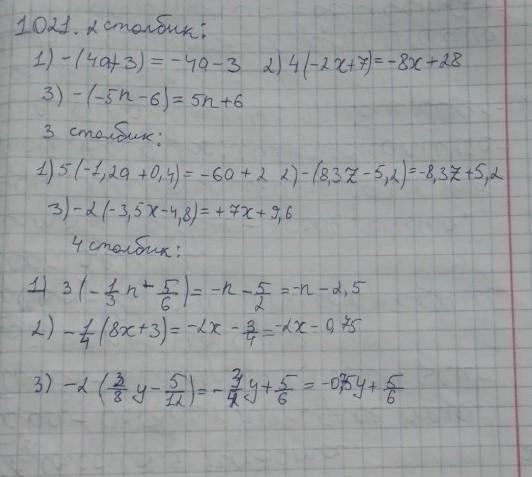 1021. 2 столбик:
1) -(4a+3) = -4a-3 2) 4(-2x+7)=-8x+28
3) -(-5n-6)=5n+6
3 столбик:
1) 5(-1,2a+0,4)=-6a+2 2)-(8,3z-5,2)=-8,3z+5,2
3)-2(-3,5x-4,8)=+7x+9,6
4 столбик:
1) 3(-1/3 n-5/6)=-n-5/2=-n-2,5
2) -1/4(8x+3)=-2x-3/4=-2x-0,75
3) -2(3/8 y-5/12)=-3/4 y+5/6=-0,75y+5/6